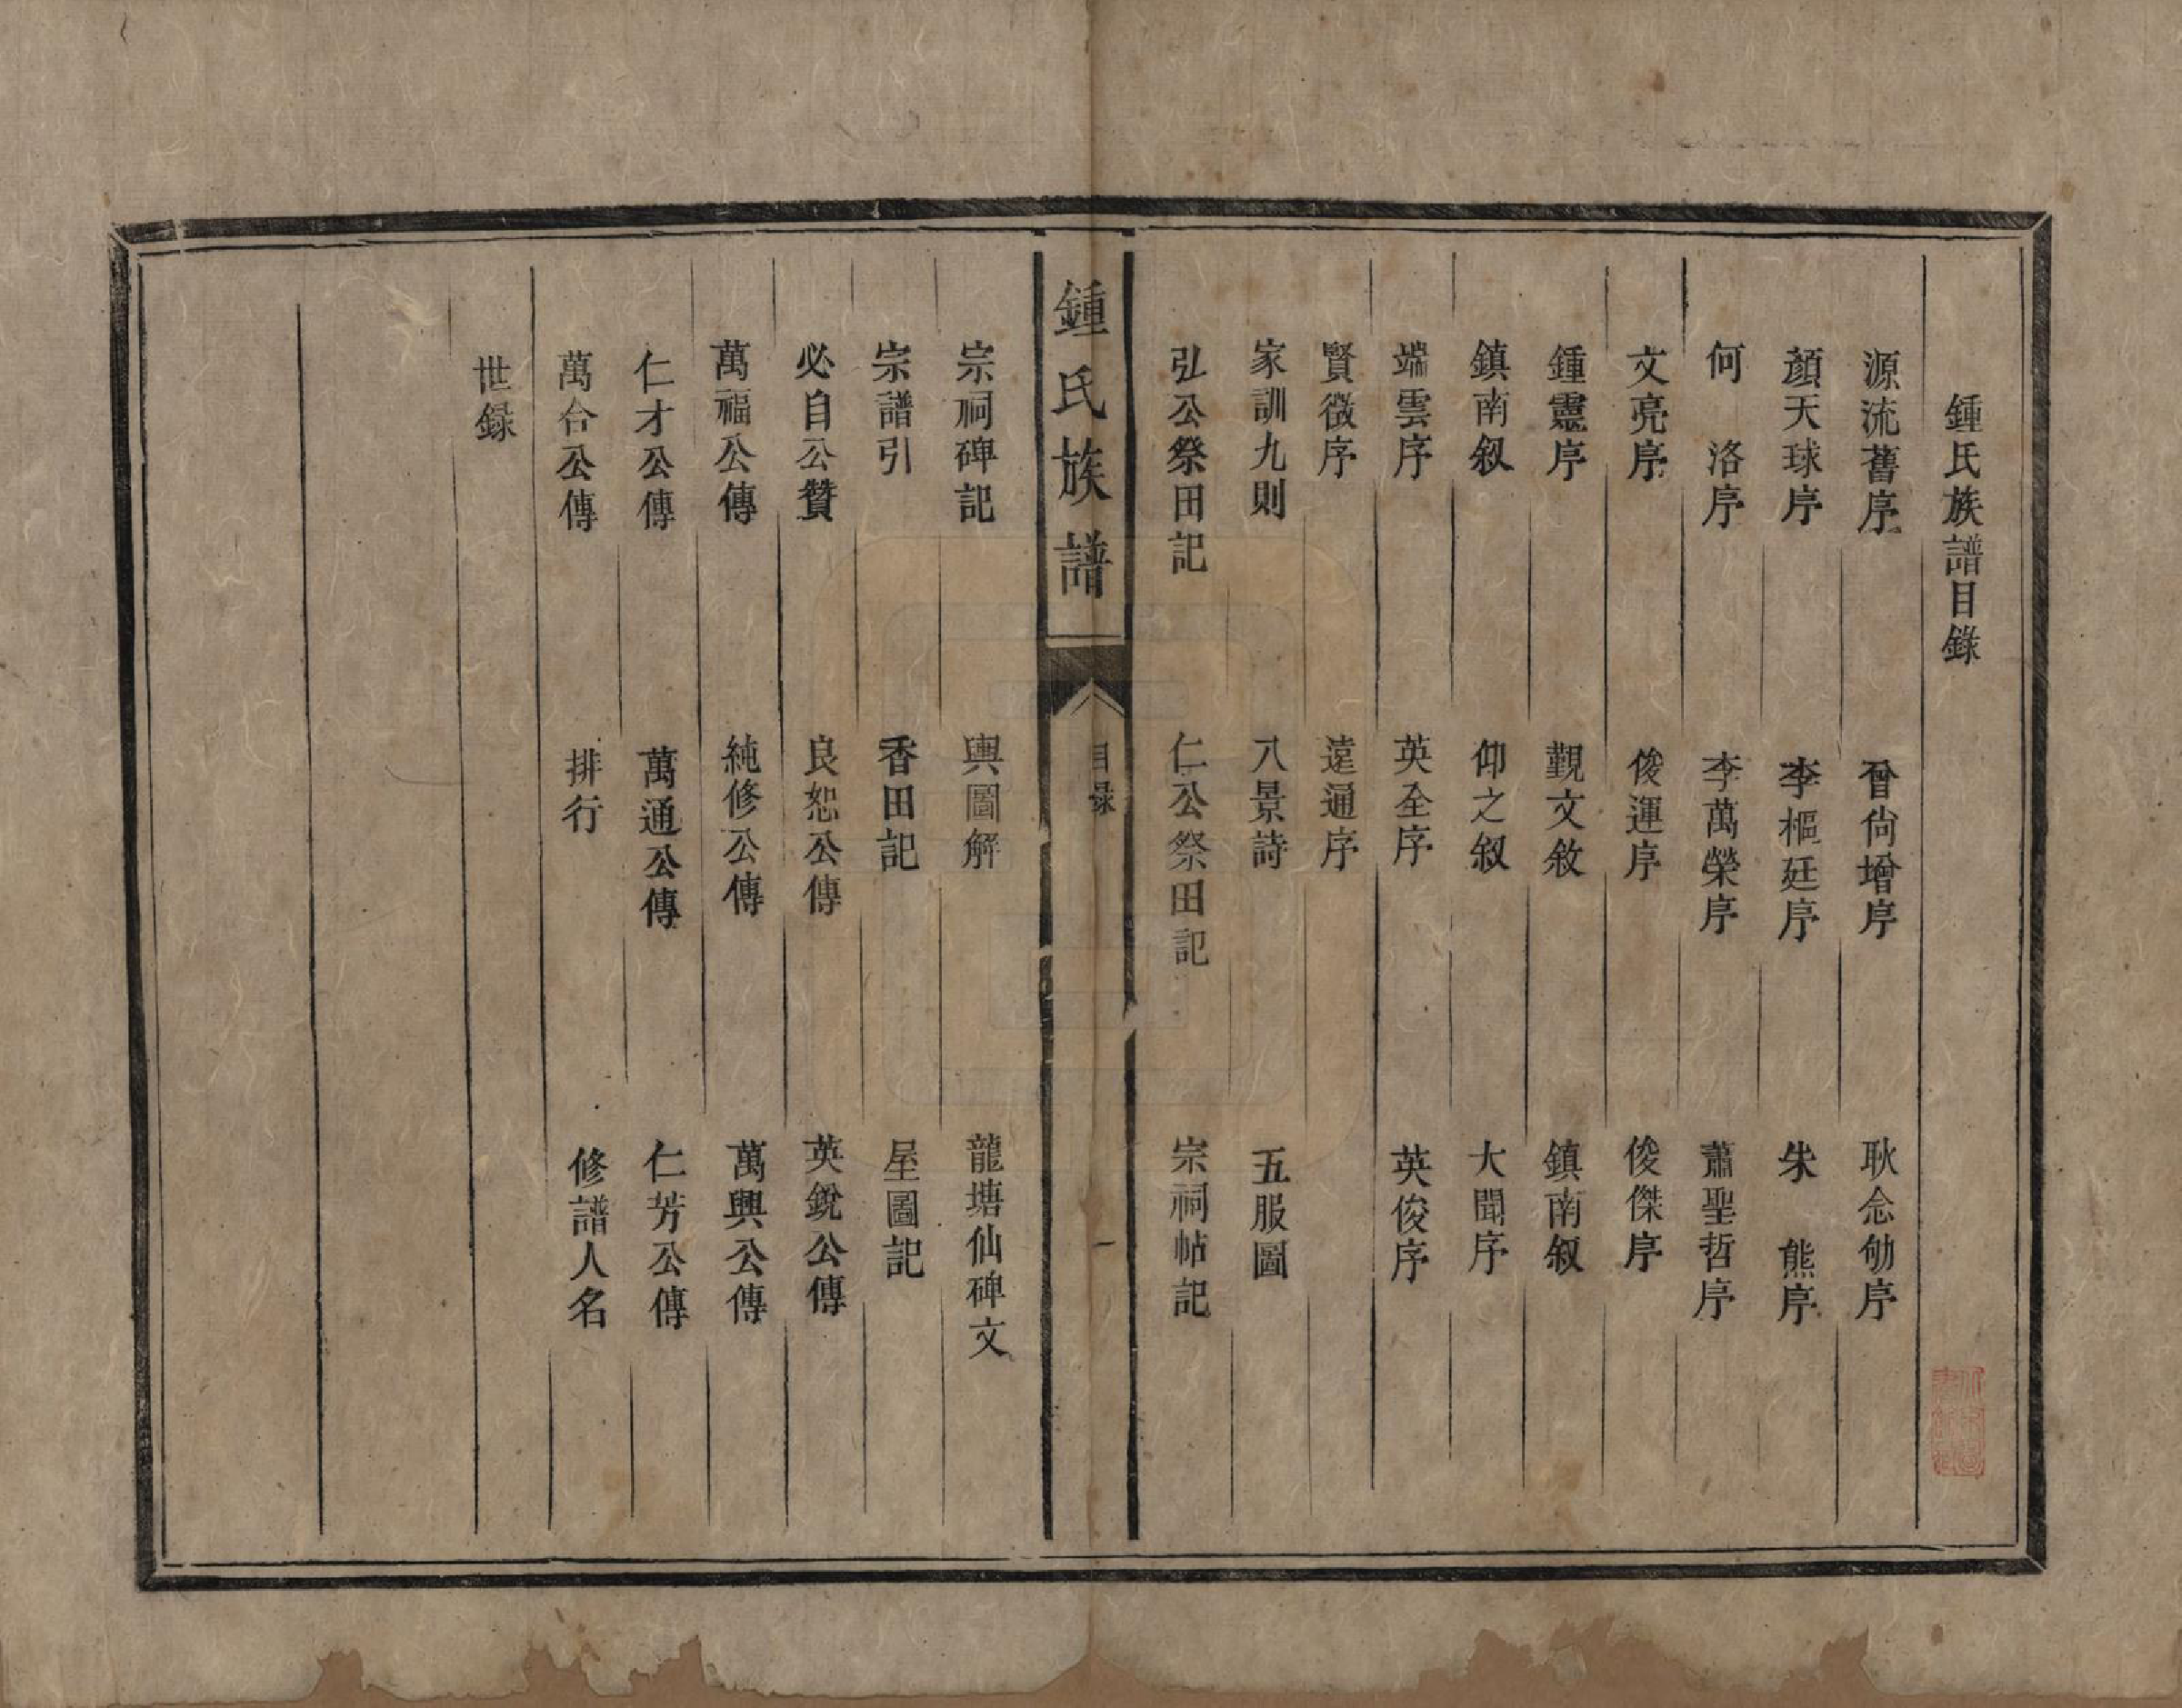 鍾氏族譜目錄
源流舊序 曾尙增序 耿念劬序
顏天球序 李樞廷序 朱 熊序
何 洛序 李萬榮序 蕭聖哲序
文亮序 俊運序 俊傑序
鍾靈序 觀文敘 鎮南叙
鎮南叙 仰之叙 大聞序
端雲序 英全序 英俊序
賢徵序 遠通序
家訓九則 八景詩 五服圖
弘公祭田記 仁公祭田記 宗祠帖記
鍾氏族譜 目錄 一
宗祠碑記 輿圖解 龍塘仙碑文
宗譜引 香田記 星圖記
必自公贊 良恕公傳 英銳公傳
萬福公傳 純修公傳 萬興公傳
仁才公傳 萬通公傳 仁芳公傳
萬合公傳 排行 修譜人名
世録